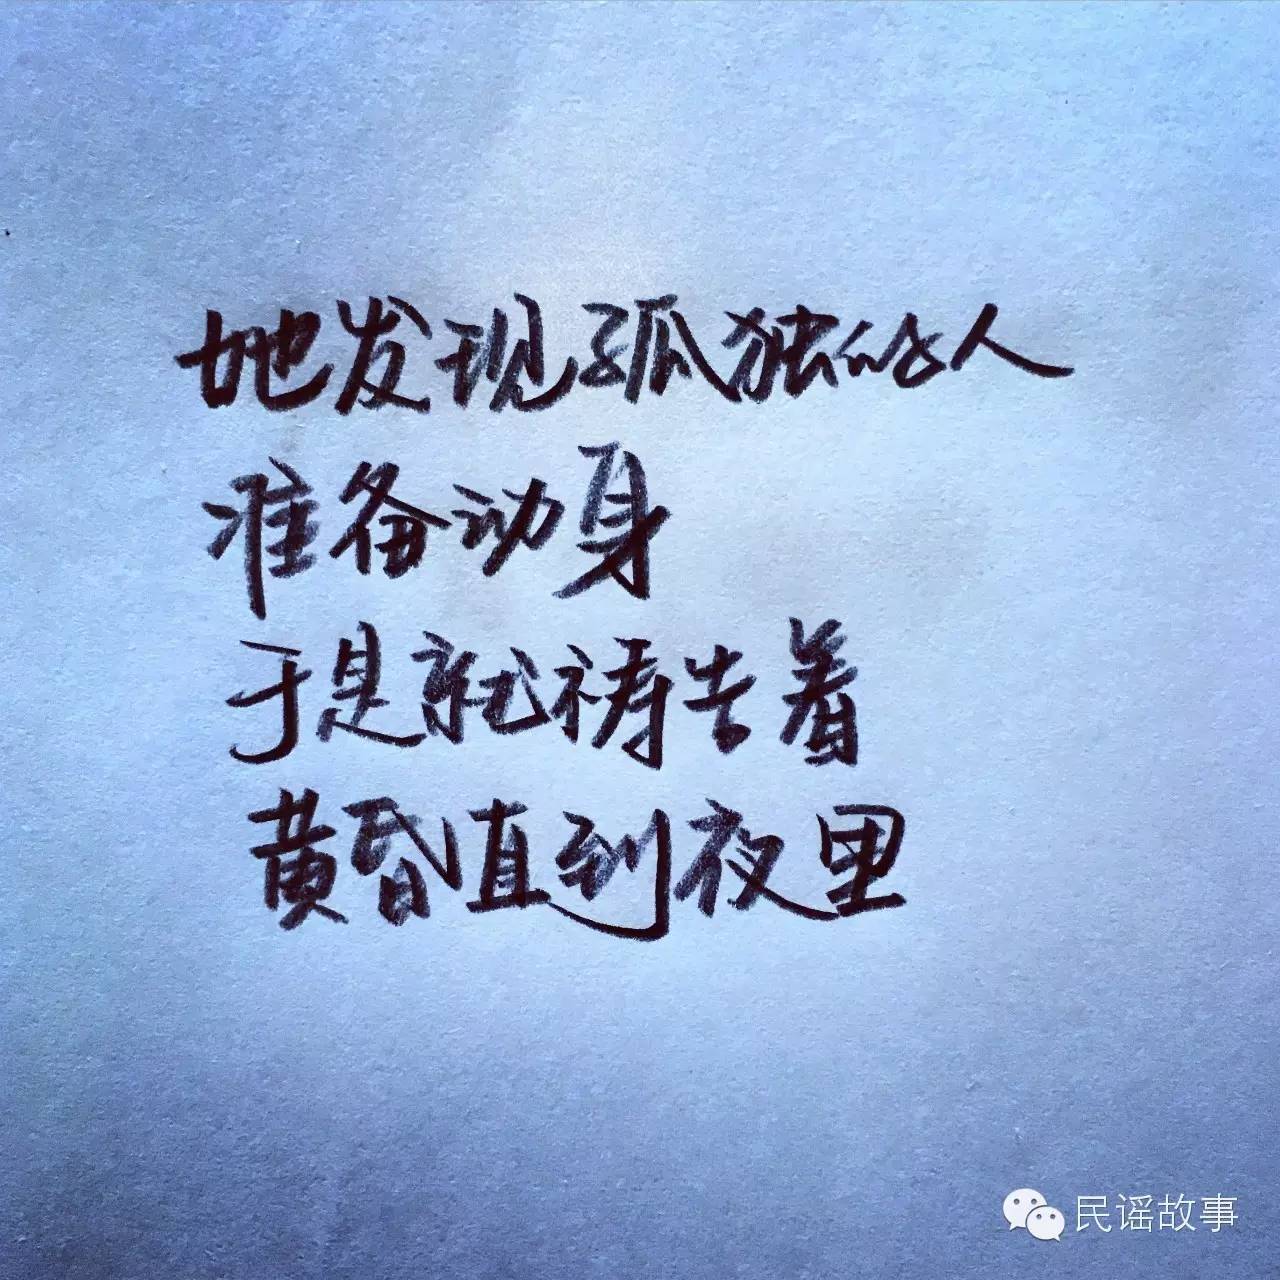 她发现孤独的人
准备动身
于是就祷告着
黄昏直到夜里
民谣故事